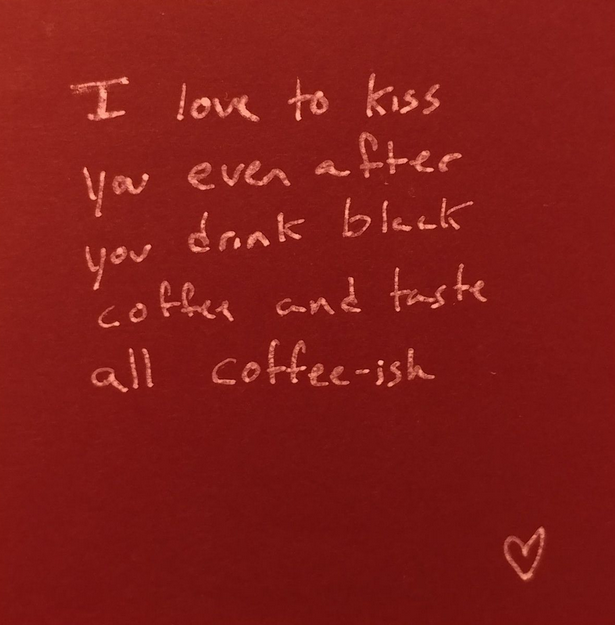 I love to kiss
you even after
you drink black
coffee and taste
all coffee-ish